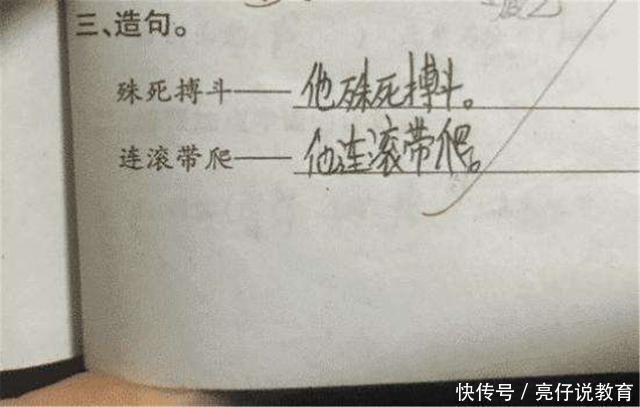 三、造句。
殊死搏斗——他殊死搏斗。
连滚带爬——他连滚带爬。
快传号/亮仔说教育